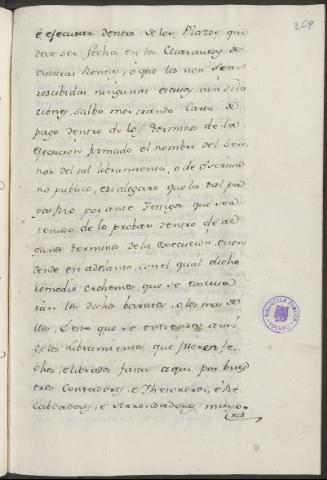 269
é esecutar dentro de los Plazos que
deve ser fecha en la
vuestras Rentas, ó que les non sean
rescibidas ningunas escusas nin dila
ciones, salbo mostrando Carta de
pago dentro de los terminos de la
esecucion firmado el nombre del Sen
nor del tal libramiento, ó de escriva
no publico, e si alegare que la tal pa
ga fizo por ante Testigos que sea
tenudo de lo probar dentro de
terminos de la execucion, e non
dende en adelante, con el qual dicho
remedio crehemos que se escusa
ran los dichos baratos, o los mas de
llos, é esto que se entienda ansi
de los libramientos que fueren fe
chos, e librados fasta aqui por bues
tros Contadores, é Thesoreros, é Re
cabdadores, é Arrendadores mayo
res
BIBLIOTECA PUBLICA
TOLEDO